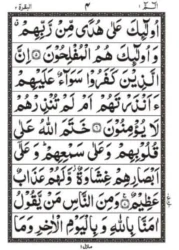 البقرة ٢
٤
الٓمّٓ ١
اُولٰٓئِكَ عَلٰى هُدًى مِّنْ رَّبِّهِمْ
وَاُولٰٓئِكَ هُمُ الْمُفْلِحُوْنَ ۝ اِنَّ
الَّذِيْنَ كَفَرُوْا سَوَآءٌ عَلَيْهِمْ
ءَاَنْذَرْتَهُمْ اَمْ لَمْ تُنْذِرْهُمْ
لَا يُؤْمِنُوْنَ ۝ خَتَمَ اللّٰهُ عَلٰى
قُلُوْبِهِمْ وَعَلٰى سَمْعِهِمْ ؕ وَعَلٰٓى
اَبْصَارِهِمْ غِشَاوَةٌ ؗ وَّلَهُمْ عَذَابٌ
عَظِيْمٌ ۝ وَمِنَ النَّاسِ مَنْ يَّقُوْلُ
اٰمَنَّا بِاللّٰهِ وَبِالْيَوْمِ الْاٰخِرِ وَمَا
منزل ١